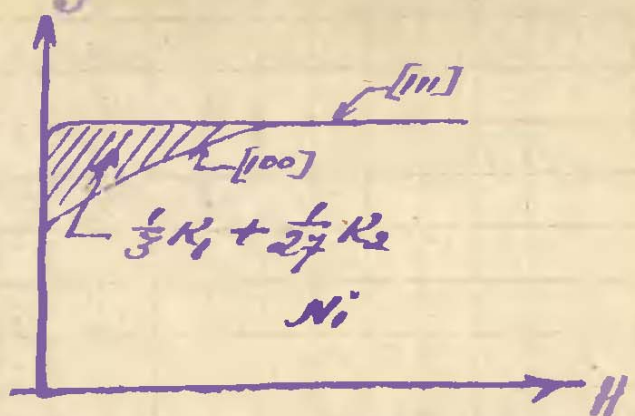 [111]
[100]
1/3 K₁ + 1/27 K₂
Ni
H